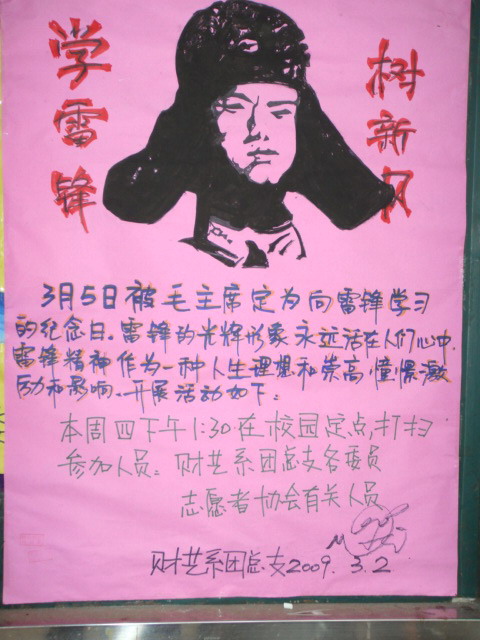 学雷锋
树新风
3月5日被毛主席定为向雷锋学习
的纪念日。雷锋的光辉形象永远活在人们心中.
雷锋精神作为一种人生理想和崇高憧憬激
励和影响.开展活动如下:
本周四下午1:30在校园定点,打扫
参加人员: 财艺系团总支各委员
志愿者协会有关人员
财艺系团总支2009.3.2